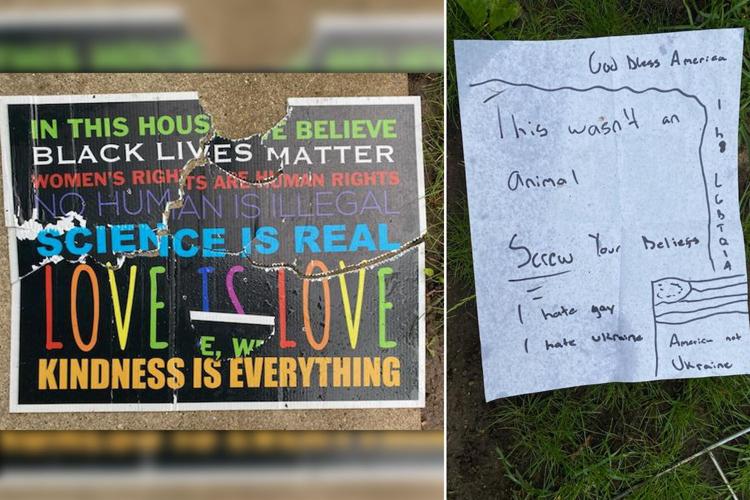 IN THIS HOUS E BELIEVE
BLACK LIVES MATTER
WOMEN'S RIGHTS ARE HUMAN RIGHTS
NO HUMAN IS ILLEGAL
SCIENCE IS REAL
LOVE IS LOVE
E, W
KINDNESS IS EVERYTHING
God Bless America
This wasn't an
animal
Screw Your Beliegs
I hate gay
I hate ukraine
LGBTQIA
America not
Ukraine